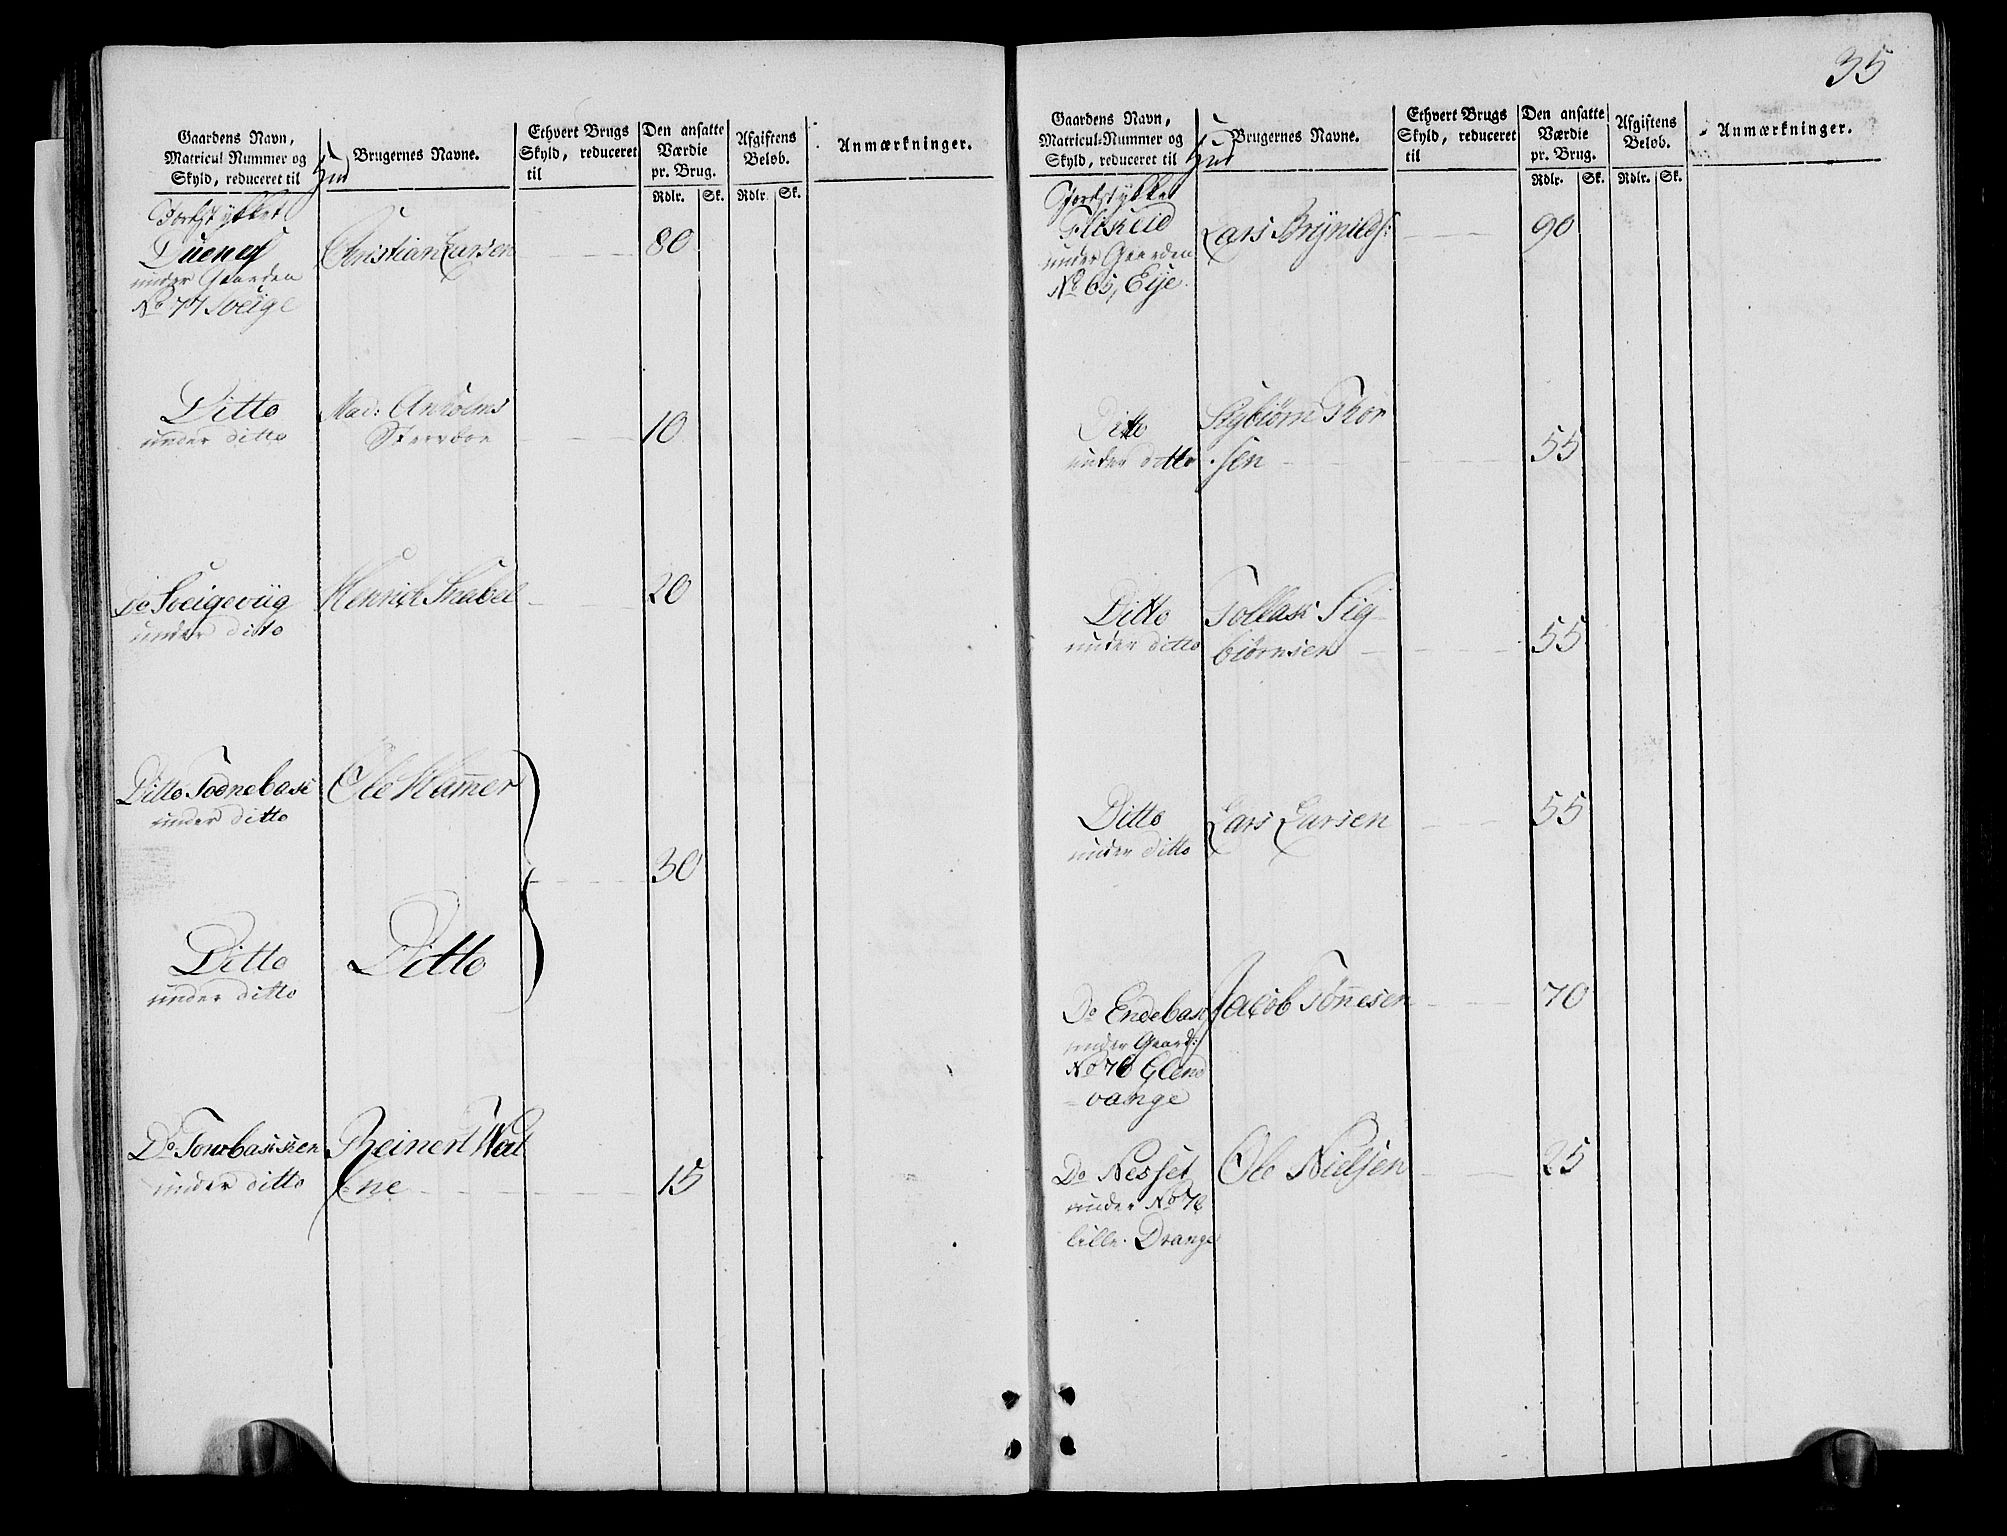 Gaardens Navn,
Matricul Nummer og
Skyld, reduceret til
Hud
Brugernes Navne.
Ethvert Brugs
Skyld, reduceret
til
Den ansatte
Værdie
pr. Brug.
Rdlr. Sk.
Afgiftens
Beløb.
Rdlr. Sk.
Anmærkninger.
under Gaarden
No 77 Sveige
Christian Larsen
80
Ditto
under ditto
Mad: Anholms
10
Do Sveigeviig
under ditto
Henrich
20
Ditto
under ditto
Ole Hamer
30
Ditto
under ditto
Ditto
Do
under ditto
Reinert Wat
ne
15
35
Gaardens Navn,
Matricul-Nummer og
Skyld, reduceret til
Hud
Brugernes Navne.
Ethvert Brugs
Skyld, reduceret
til
Den ansatte
Værdie
pr. Brug.
Rdlr. Sk.
Afgiftens
Beløb.
Rdlr. Sk.
Anmærkninger.
under Gaarden
No 65, Eije
Lars Brÿnilds:
90
Ditto
under ditto
Sigbiørn Thor
sen
55
Ditto
under ditto
Tollas Sig
biørnsen
55
Ditto
under ditto
Lars Larsen
55
Do
under Gaard:
No 76
vange
Jacob Tønnesen
70
Do Nesset
under No 76
lille Drange
Ole Nielsen
25